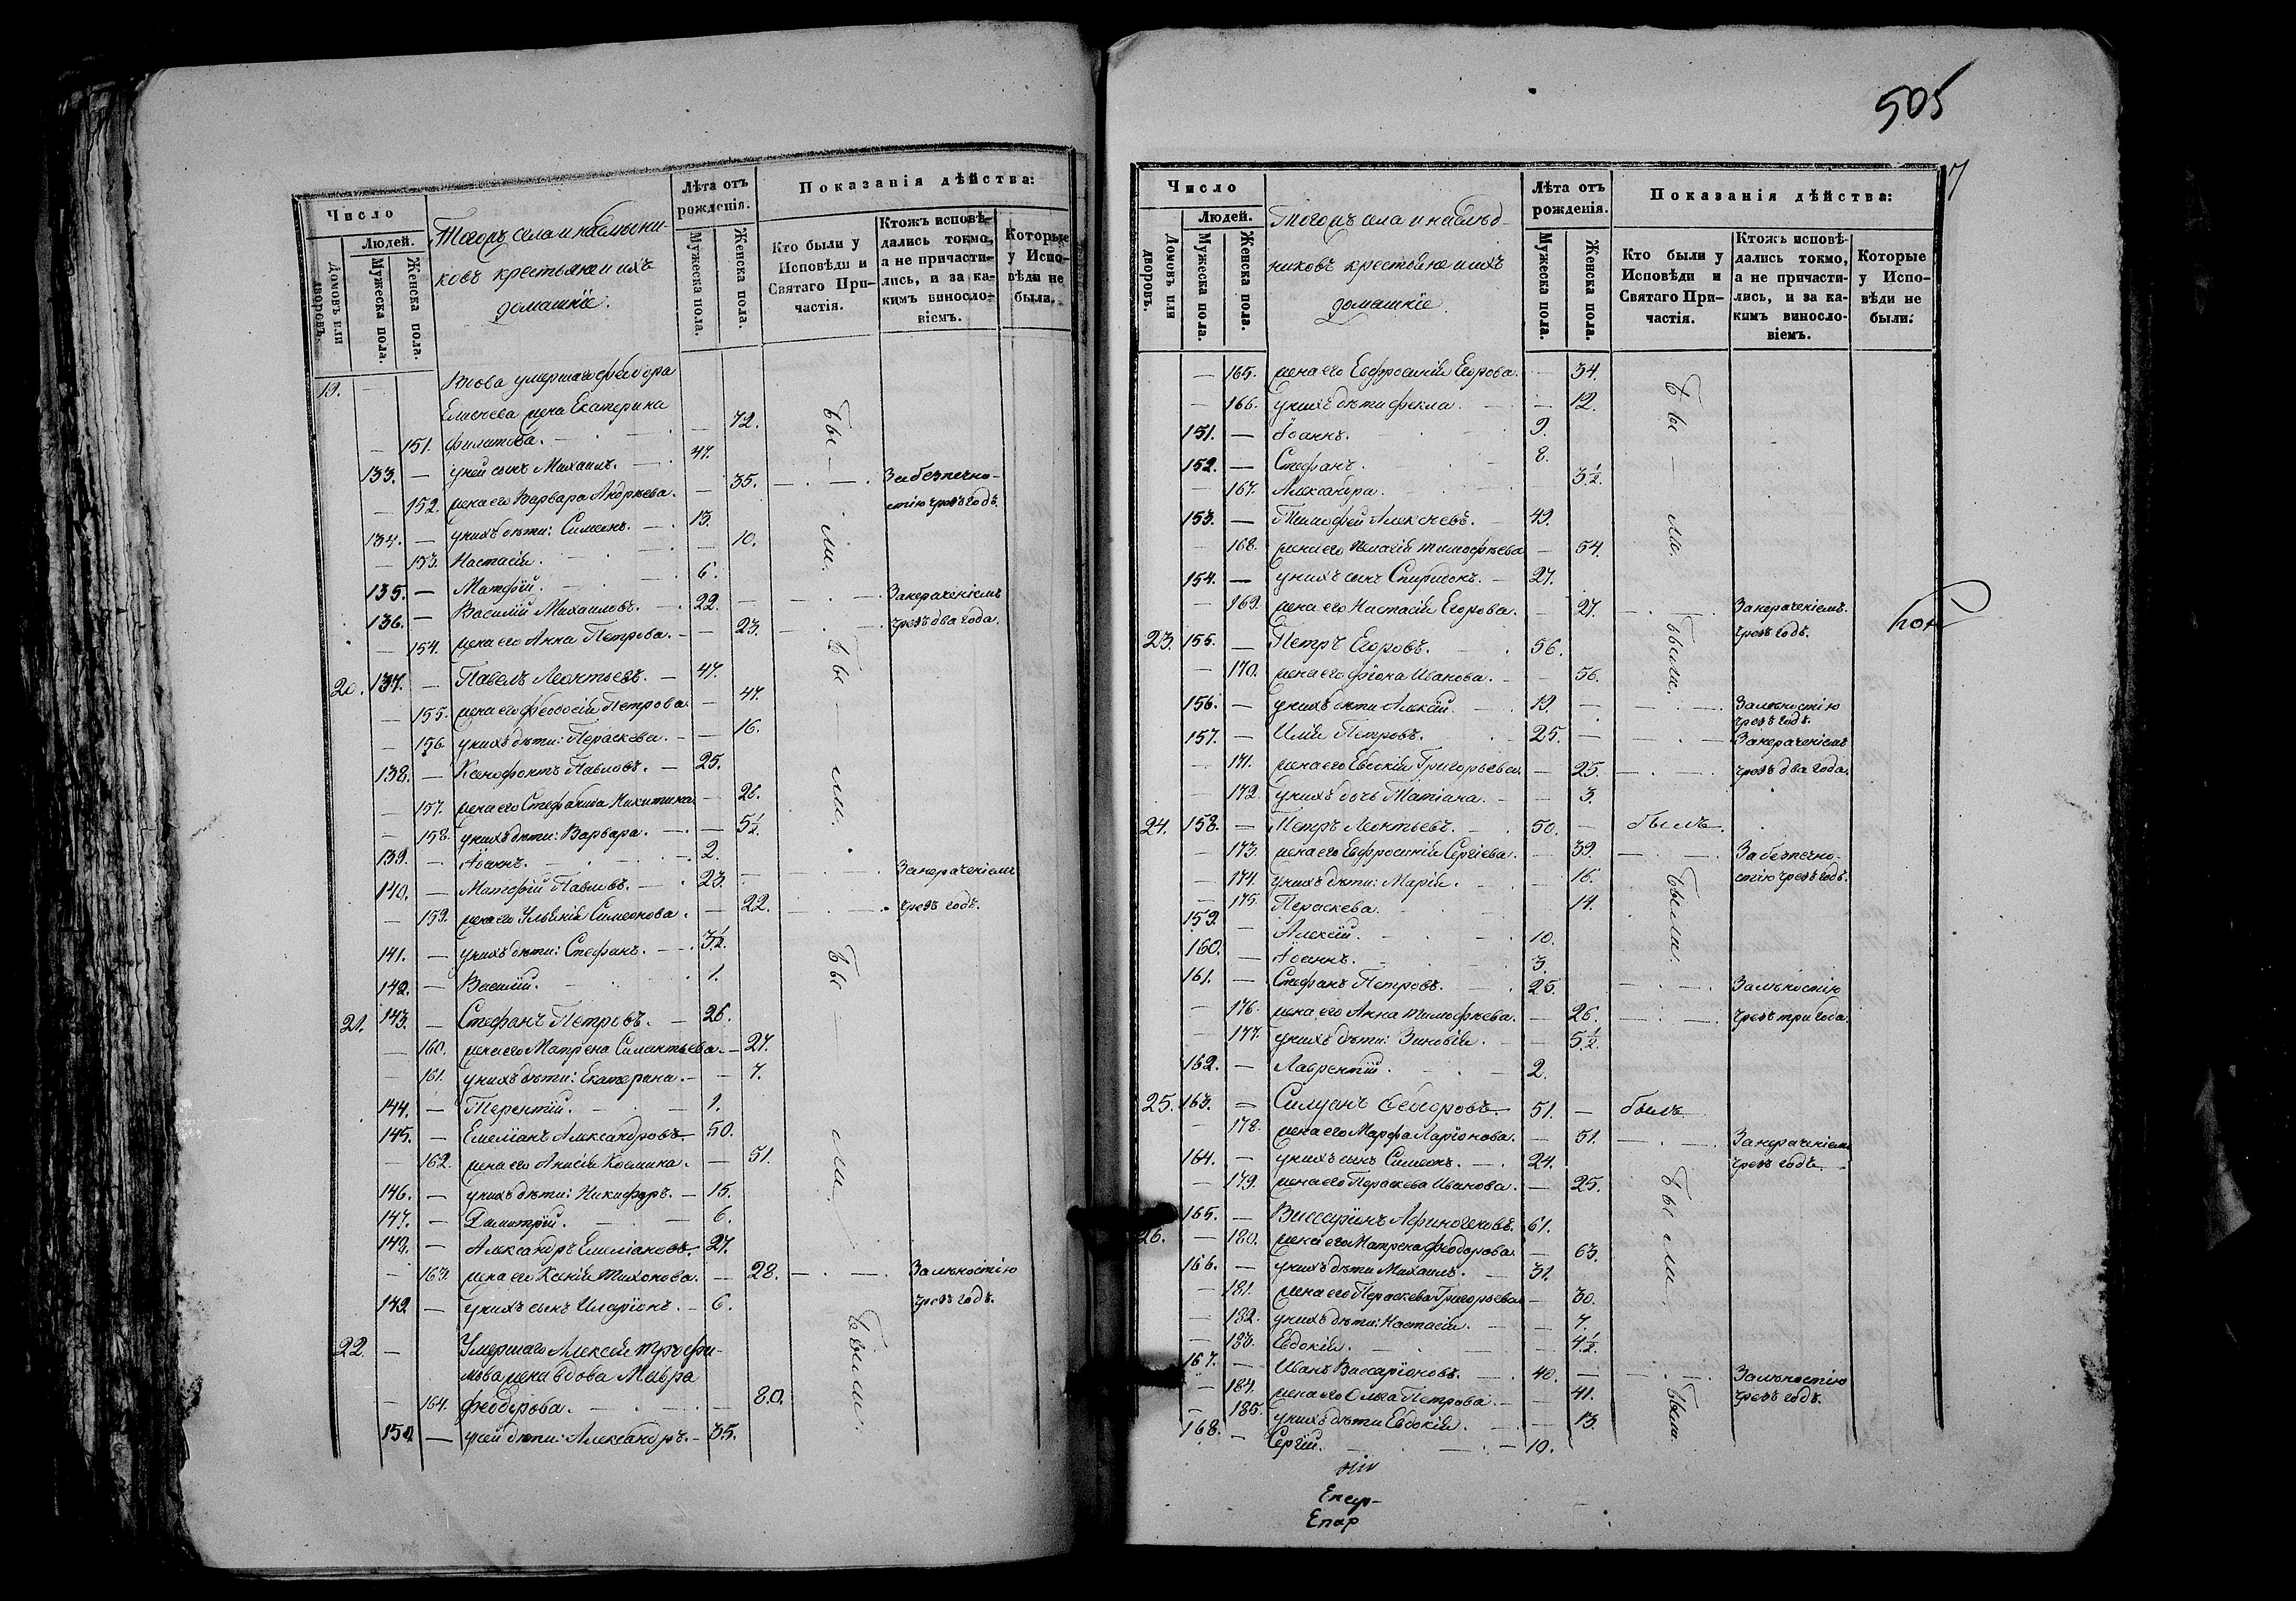 Число
Людей.
Домовъ или дворовъ.
Мужеска пола.
Женска пола.
Тогожъ села и наслѣдни-
ковъ крестьяне и ихъ
домашніе.
Лѣта отъ
рожденія.
Мужеска пола.
Женска пола.
Показанія дѣйства:
Кто были у
Исповѣди и
Святаго При-
частія.
Ктожъ исповѣ-
дались токмо,
а не причасти-
лись, и за ка-
кимъ виносло-
віемъ.
Которые
у Испо-
вѣди не
были.
19. — Вдова умершаго Феодора
Елисеева жена Екатерина
— 151. Филатова. — 72.
133. — у ней сынъ Михаилъ. 47.
— 152. жена его Варвара Андреева. — 35. За безпечно-
стію чрезъ годъ.
134. — у нихъ дѣти: Симеонъ. 13.
— 153. Настасія. — 10.
135. — Матфій. 6.
136. — Василій Михаиловъ. 22. — За нераченіемъ
— 154. жена его Анна Петрова. — 23. чрезъ два года.
20. 137. — Павелъ Леонтьевъ. — 47.
— 155. жена его Феодосія Петрова. — 47.
— 156. у нихъ дѣти: Параскева. — 16.
138. — Ксенофонтъ Павловъ. — 25.
— 157. жена его Стефанида Никитина — 26.
— 158. у нихъ дѣти: Варвара. — 5½
139. — Іоаннъ. 2.
140. — Матфій Павловъ. 23. За нераченіемъ
— 159. жена его Ульянія Симеонова. — 22. чрезъ годъ.
141. — у нихъ дѣти: Стефанъ. 3½
142. — Василій. 1.
21. 143. — Стефанъ Петровъ. — 26.
— 160. жена его Матрена Силантьева. — 27.
— 161. у нихъ дѣти: Екатерина. — 7.
144. — Терентій. — 1.
145. — Емеліанъ Александровъ 50.
— 162. жена его Анисія Космина. — 51.
146. — у нихъ дѣти: Никифоръ. — 15.
147. — Димитрій. — 6.
148. — Александръ Емеліановъ. 27.
— 163. жена его Ксенія Тихонова. — 28. За лѣностію
149. — у нихъ сынъ Иларіонъ. — 6. чрезъ годъ.
22. — Умершаго Алексея Трофи-
мова жена вдова Мавра
— 164. Феодорова. — 80.
150. — у ней дѣти: Александръ. — 35.
Бы — ли.
Бы — ли.
Бы — ли.
Были.
505
7
Число
Людей.
Домовъ или дворовъ.
Мужеска пола.
Женска пола.
Тогожъ села и наслѣд-
никовъ крестьяне и ихъ
домашніе.
Лѣта отъ
рожденія.
Мужеска пола.
Женска пола.
Показанія дѣйства:
Кто были у
Исповѣди и
Святаго При-
частія.
Ктожъ исповѣ-
дались токмо,
а не причасти-
лись, и за ка-
кимъ виносло-
віемъ.
Которые
у Испо-
вѣди не
были.
— 165. жена его Евфросинія Егорова. — 34.
— 166. у нихъ дѣти Фекла. — 12.
151. — Іоаннъ. 9.
152. — Стефанъ. 8.
— 167. Александра. 3½
153. — Тимофей Алексеевъ. 49.
— 168. жена его Пелагія Тимофеева — 54.
154. — у нихъ сынъ Спиридонъ. — 27.
— 169. жена его Настасія Егорова. — 27. За нераченіемъ
23. 155. — Петръ Егоровъ. 56. чрезъ годъ.
— 170. жена его Фіона Иванова. — 56.
156. — у нихъ дѣти Алексій. 19. — За лѣностію
чрезъ годъ.
157. — Илія Петровъ. 25. — За нераченіемъ
— 171. жена его Евдокія Григорьева. — 25. чрезъ два года.
— 172. у нихъ дочь Татіана. — 3.
24. 158. — Петръ Леонтьевъ. 50. — былъ.
— 173. жена его Евфросинія Сергіева. — 39. За безпечно-
— 174. у нихъ дѣти: Марія. — 16. стію чрезъ годъ.
— 175. Параскева. 14.
159. — Алексій. 10.
160. — Іоаннъ. 3.
161. — Стефанъ Петровъ. 25. За лѣностію
— 176. жена его Анна Тимофеева. — 26. чрезъ три года.
— 177. у нихъ дѣти: Зиновія. — 5½
162. — Лаврентій. — 2.
25. 163. — Силуанъ Феодоровъ 51. — былъ
— 178. жена его Марфа Ларіонова. — 51. За нераченіемъ
164. — у нихъ сынъ Симеонъ. 24. чрезъ годъ
— 179. жена его Параскева Иванова. — 25.
165. — Виссаріонъ Афиногеновъ. 61.
26. — 180. жена его Матрена Феодорова. — 63.
166. — у нихъ дѣти Михаилъ. 31.
— 181. жена его Параскева Григорьева — 30.
— 182. у нихъ дѣти: Настасія. — 7.
— 183. Евдокія. — 4½
167. — Иванъ Виссаріоновъ. 40. — За лѣностію
— 184. жена его Ольга Петрова. — 41. чрезъ годъ.
— 185. у нихъ дѣти Евдокія. — 13.
168. — Сергій. — 10.
Бы — ли.
Были.
Были.
Бы ли.
Были.
Епар